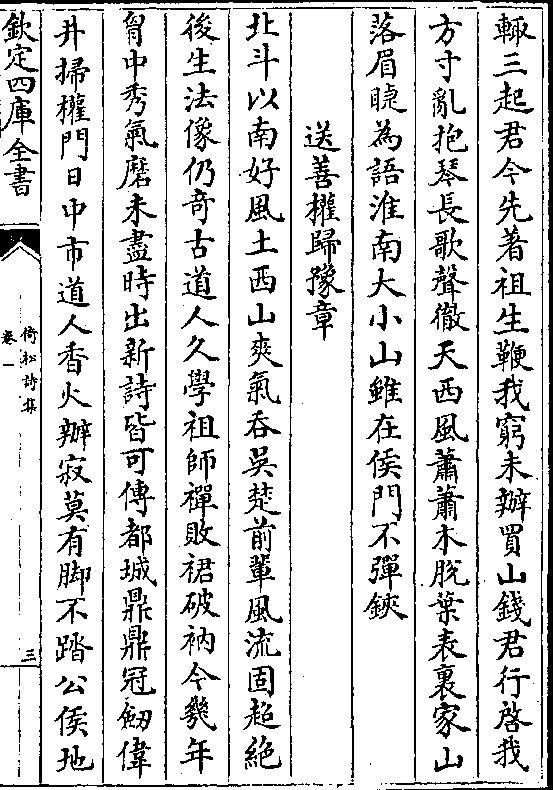 輙三起君今先著祖生鞭我窮未辦買山錢君行啓我
方寸亂抱琴長歌聲徹天西風蕭蕭木脫葉表裏家山
落眉睫為語淮南大小山雖在侯門不彈鋏
送善權歸豫章
北斗以南好風土西山爽氣吞吳楚前輩風流固超絶
後生法像仍竒古道人久學祖師禪敗裙破衲今幾年
胷中秀氣磨未盡時出新詩皆可傳都城鼎鼎冠劒偉
井掃權門日中市道人香火辦寂莫有脚不踏公侯地
欽定四庫全書
倚松詩集
卷一
三